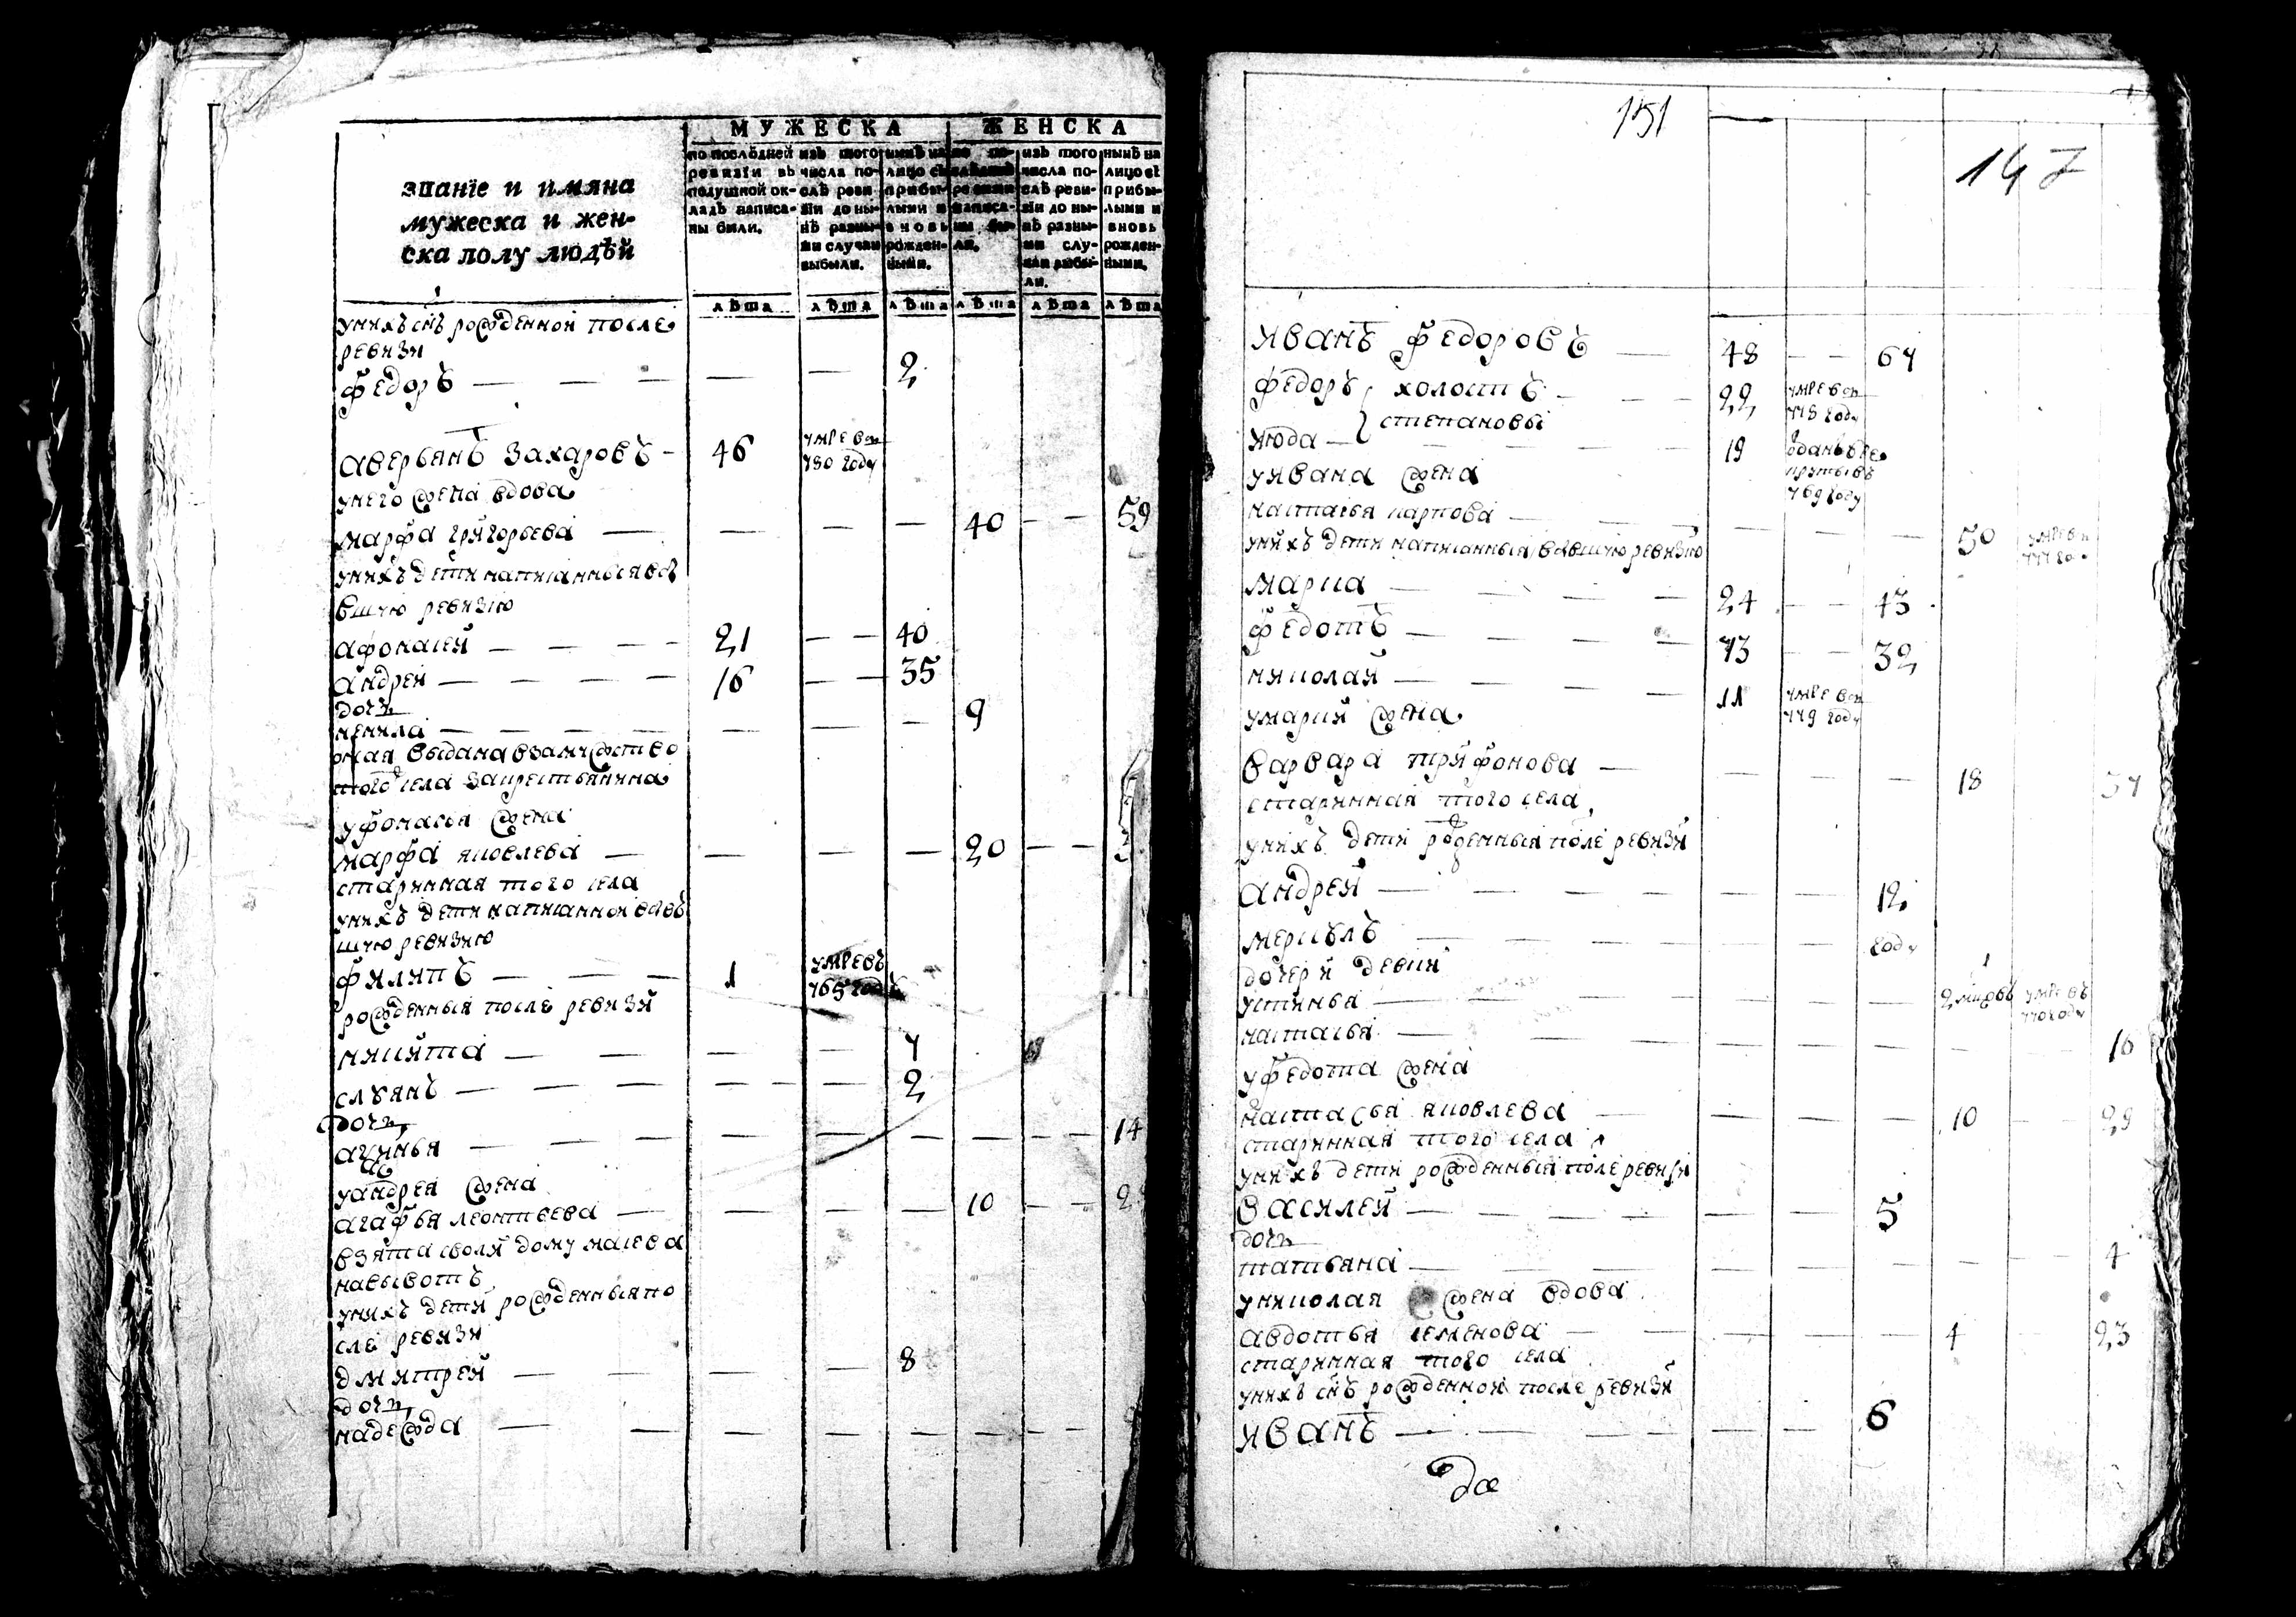 званїе и имяна
мужеска и жен-
ска полу людѣй
МУЖЕСКА
по послѣдней
ревизїи въ
подушной ок-
ладъ написа-
ны были.
изъ того
числа по-
слѣ реви-
зїи до ны-
нѣ разны-
ми случаи
выбыли.
нынѣ на
лицо съ
прибы-
лыми и
вновь
рожден-
ными.
ЖЕНСКА
по по-
слѣдней
ревизїи
написа-
ны бы-
ли.
изъ того
числа по-
слѣ реви-
зїи до ны-
нѣ разны-
ми слу-
чаи выбы-
ли.
нынѣ на
лицо съ
прибы-
лыми и
вновь
рожден-
ными.
лѣта лѣта лѣта лѣта лѣта лѣта
унихъ снъ рожденной после
ревизи
федоръ — — — — — 2
аверьянъ захаровъ — 46 умре в
780 году
унего жена вдова
марфа григорьева — — — — 40 — — 59
унихъ дети написанныя въ
вшую ревизию
афонасей — — — — 21 — — 40
андреи — — — — 16 — — 35
дочь
ненила — — — — — — — 9
оная выдана взамужство
того села закрестьянина
уфонасья жена
марфа яковлева — — — — 20 — — 3
старинная того села
унихъ дети написанной въ
шую ревизию
филипъ — — — 1 умревъ
765 году
рожденныя после ревизй
никита — — — — 4
слуянъ — — — — — — 2
дочь
агинья — — — — — — — — — 14
уандрея жена
агафья леонтьева — — — — 10 — — 2
взята своли дому
наживотъ
унихъ дети рожденныя по
сле ревизи
дмитрей — — — — 8
дочь
надежда — — — — — — — —
151
147
иванъ федоровъ — 48 — — 64
федоръ холостъ — — — 22 умре в
775 году
степановы
июда — — — — 19 отданъ въ ре
круты въ
769 году
уивана жена
настасья карпова — — — — — — 50 умре в
777 го
унихъ дети написанныя вбывшую ревизию
марка — — — — 24 — — 43
федотъ — — — — 13 — — 32
николай — — — — 11 умре в
779 году
умарки жена
варвара трифонова — — — — 18 37
старинная того села
унихъ дети рожденныя поле ревизй
андрей — — — — — — 12
меркулъ — — — — — — году
дочери девки
устинья — — — — — — 2 умревъ
770 году
настасья — — — — — — — — 10
уфедота жена
настасья яковлева — — — — 10 — — 29
старинная того села
унихъ дети рожденныя поле ревизй
василей — — — — — — 5
дочь
татьяна — — — — — — — — 4
униколая жена вдова
авдотья семенова — — — — — 4 23
старинная того села
унихъ снъ рожденной после ревизй
иванъ — — — — — — 6
до